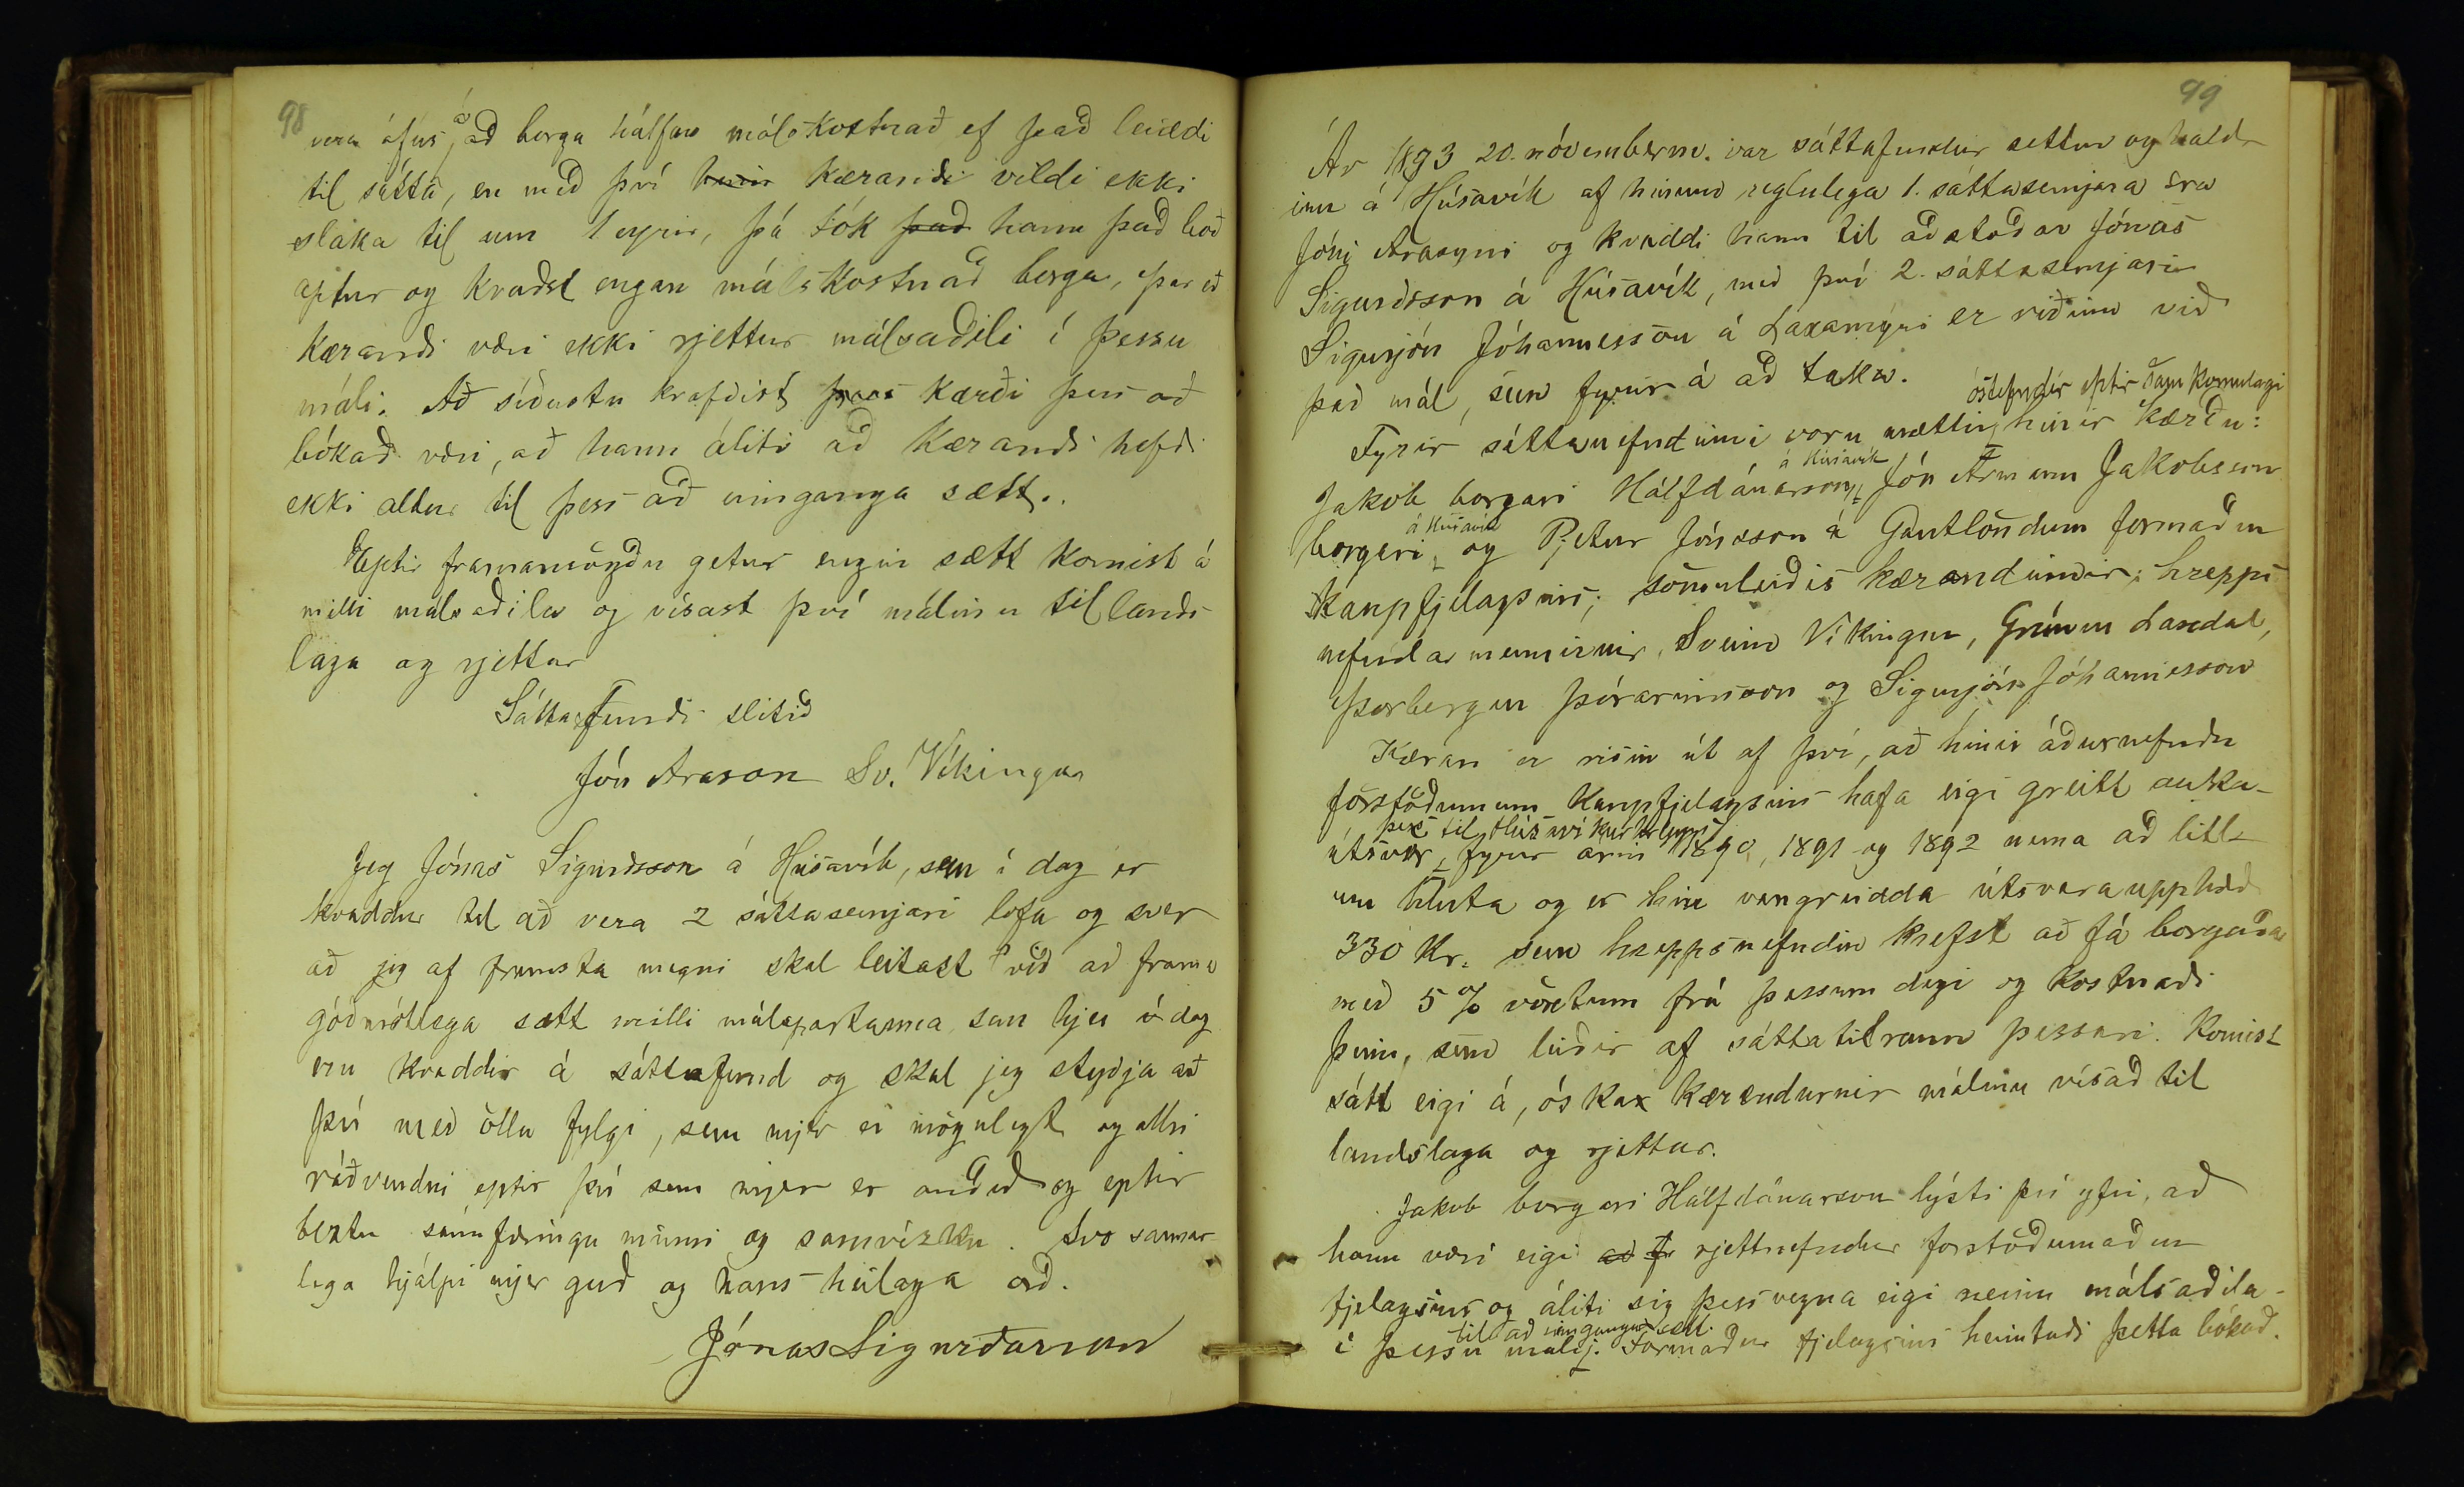 98
vera áfús á að borga hálfan málskostnað ef það leiddi
til sátta, en með því hinn kærandi vildi ekki
slaka til um 1 eyrir, þá tók það hann það boð
aptur og kvaðst engan málskostnað borga, þar eð
kærandi væri ekki rjettur málsaðili í þessu
máli. Að síðustu krafðist kærði þess að
bókað væri, að hann áliti að kærandi hefði
ekki altur til þess að inganga sætt.
Eptir framansögðu getur engin sætt komist á
milli málsaðila og vísast því málinu til lands
laga og rjettar
Sáttafundi slitið
Jón Arason Sv. Víkingur
Jeg Jónas Sigurðsson á Húsavík, sem í dag er
kvaddur til að vera 2 sáttasemjari lofa og sver
að jeg af fremsta megni skal leitast við að frama
góðmótlega sætt milli málspartanna sem hjer í dag
eru kvaddir á sáttafund og skal jeg styðja að
því með öllu fylgi, sem mjer er mögulegt og allri
ráðvendni eptir því sem mjer er auðið og eptir
beztu sannfæringu minni og samvizku. Svo sannar
lega hjálpi mjer guð og hans heilaga orð.
Jónas Sigurðarson
99
Ár 1893 20. nóvemberm. var sáttafundur settur og hald-
inn á Húsavík af hinum reglulega 1. sáttasemjara sra
Jóni Arasyni og kvaddi hann til aðstoðar Jónas
Sigurðsson á Húsavík, með því 2. sáttasemjari
Sigurjón Jóhannesson á Laxamýri er riðinn við
það mál, sem fyrir á að taka.
óstefndir eptir samkomulagi
Fyrir sáttanefndinni voru mættir hinir kærðu:
á Húsavík
Jakob borgari Hálfdánarson, Jón Ármann Jakobsson
á Húsavík
borgari og Pjetur Jónsson á Gautlöndum formaður
Kaupfjelagsins; sömuleiðis kærendurnir: hrepps
nefndar mennirnir, Sveinn Víkingur, Grímur Laxdal,
Þorbergur Þórarinsson og Sigurjón Jóhannesson
Kæran er risin út af því, að hinir áðurnefndu
forstöðumenn Kaupfjelagsins hafa eigi greitt auka-
þess til Húsavíkurhrepps
útsvar, fyrir árin 1890, 1891 og 1892 nema að litl-
um hluta og er hin vangreidda útsvaraupphæð
330 kr. sem hreppsnefndin krefst að fá borgaða
með 5% vöxtum frá þessum degi og kostnaði
þeim, sem leiðir af sáttatilraun þessari. Komist
sátt eigi á, óskar kærendurnir málinu vísað til
landslaga og rjettar.
Jakob borgari Hálfdánarson lýsti því yfir, að
hann væri eigi að f rjettnefndur forstöðumaður
fjelagsins og áliti sig þess vegna eigi neinn málsaðila-
til að inngangu sætt.
í þessu máli. Formaður fjelagsins heimtaði þetta bókað.